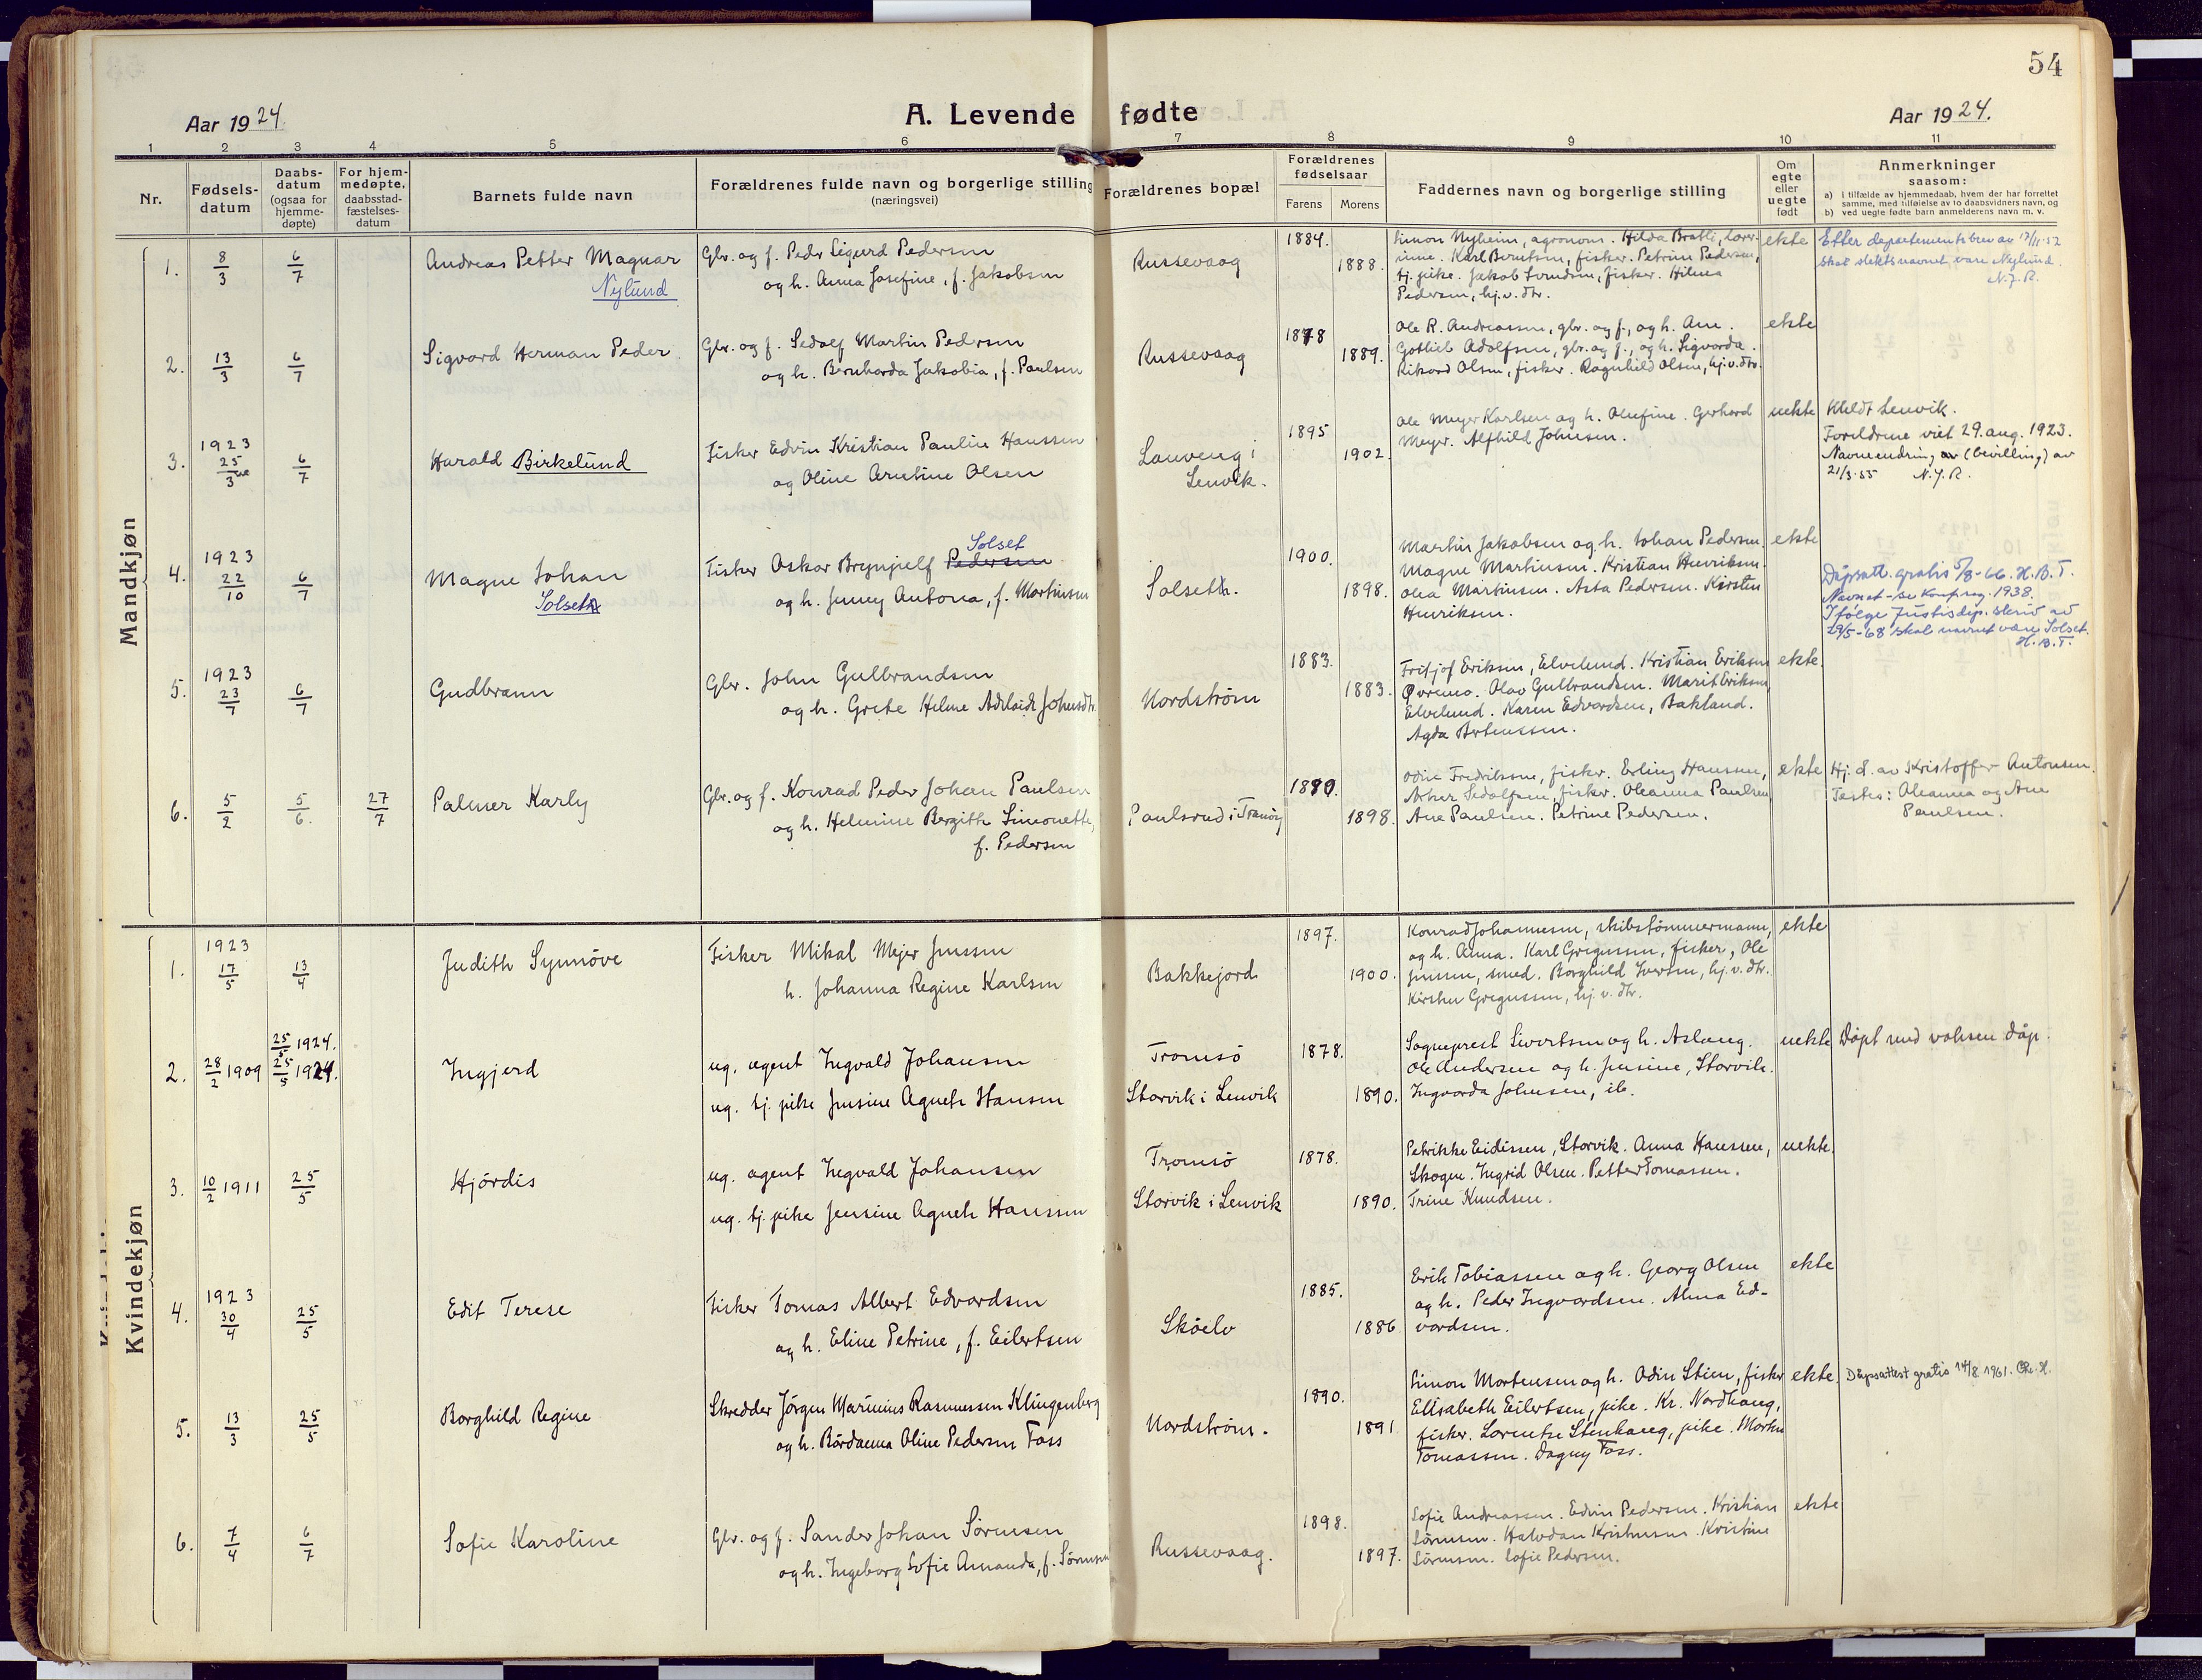 54
Aar 1924
A. Levende fødte
Aar 1924.
1 2 3 4 5 6 7 8 9 10 11
Nr.
Fødsels-
datum
Daabs-
datum
(ogsaa for
hjemme-
døpte)
For hjem-
medøpte,
daabsstad-
fæstelses-
datum
Barnets fulde navn
Forældrenes fulde navn og borgerlige stilling
(næringsvei)
Forældrenes bopæl
Forældrenes
fødselsaar
Farens
Morens
Faddernes navn og borgerlige stilling
Om
egte
eller
uegte
født
Anmerkninger
saasom:
a) i tilfælde av hjemmedaab, hvem der har forrettet
samme, med tilføielse av to daabsvidners navn, og
b) ved uegte fødte barn anmelderens navn m. v.
Mandkjøn
1. 8/3 6/7
Andreas Petter Magnar
Nylund
Gbr. og f. Peder Sigurd Pedersen
og h. Anna Josefine, f. Jakobsen
Russevaag
1884.
1888.
Simon Nyheim, agronom. Hilda Bratli, lærer-
inne. Karl Berntsen, fisker. Petrine Pedersen,
tj. pike. Jakob fisker. Hilma
Pedersen, hj.v. dtr.
ekte
Etter departementsbrev av 17/11-52
skal slektsnavnet være Nylund.
N.J.R.
2. 13/3 6/7
Sigvard Herman Peder.
Gbr. og f. Sedolf Martin Pedersen
og h. Bernharda Jakobia, f. Paulsen
Russevaag
1878
1889.
Ole R. Andreassen, gbr. og f., og h. Ane.
Gotlieb Adolfsen, gbr. og f., og h. Sigvarda.
Rikard Olsen, fisker. Ragnhild Olsen, hj.v. dtr.
ekte
3. 1923
25/3 6/7
Harald Birkelund
Fisker Edvin Kristian Paulin Hanssen
og Oline Arntine Olsen
Lauveng i
Lenvik.
1895
1902.
Ole Meyer Karlsen og h. Olufine. Gerhard
Meyer. Alfhild Johnsen.
uekte
Meldt Lenvik.
Foreldrene viet 29. aug. 1923.
Navneendring av (bevilling) av
21/3-55 N.J.R.
4. 1923
22/10 6/7
Magne Johan
Solset
Solset
Fisker Oskar Brynjulf Pedersen
og h. Jenny Antona, f. Martinsen
Solseth.
1900.
1898.
Martin Jakobsen og h. Johan Pedersen.
Magne Martinsen. Kristian Henriksen.
Olea Martinsen. Asta Pedersen. Kirsten
Henriksen.
ekte
Dåpsatt. gratis 5/8-66. H.B.T.
Navnet - se Konf.reg. 1938.
Ifølge Justisdep. skriv av
29/5-68 skal navnet være Solset.
H.B.T.
5. 1923
23/7 6/7
Gudbrann
Gbr. John Gulbrandsen
og h. Grete Helene Adelaide Johnsdtr.
Nordstrøm
1883.
1883.
Fritjof Eriksen, Elvelund. Kristian Eriksen
Øvremo. Olav Gulbrandsen. Marit Eriksen,
Elvelund. Karen Edvardsen, Bakland.
Agda Berteussen.
ekte.
6. 5/2 5/6. 27/7
Palmer Karly
Gbr. og f. Konrad Peder Johan Paulsen
og h. Helmine Bergithe Simonette,
f. Pedersen
Paulsrud i Tranøy
1890.
1898.
Odin Fredriksen, fisker. Erling Hanssen,
Sedolfsen, fisker. Oleanna Paulsen,
Ane Paulsen. Petrine Pedersen.
ekte
Hj. d. av Kristoffer Antonsen.
Testes: Oleanna og Ane
Paulsen.
Kvindekjøn
1. 1923
17/5 13/4
Judith Synnöve
Fisker Mikal Mejer Jenssen
h. Johanna Regine Karlsen
Bakkejord
1897.
1900.
Konrad Johannesen, skibstömmermann,
og h. Anna. Karl Gregussen, fisker, Ole
Jenssen, smed. Borghild Iversen, hj.v. dtr.
Kirsten Gregussen, hj.v. dtr.
ekte
25/5 1924.
2. 28/2 1909 25/5 1924.
Ingjerd
ug. agent Ingvald Johansen
ug. tj. pike Jensine Agnete Hansen
Tromsö
Storvik i Lenvik
1878.
1890.
Sogneprest Sivertsen og h. Aslaug.
Ole Andersen og h. Jensine, Storvik.
Ingvarda Johnsen, ib.
uekte
Döpt med voksen dåp.
3. 10/2 1911 25/5
Hjördis
ug. agent Ingvald Johansen
ug. tj. pike Jensine Agnete Hanssen
Tromsö
Storvik i Lenvik
1878.
1890.
Petrikke Eidissen, Storvik. Anna Hanssen,
Skogen. Ingrid Olsen. Petter Tomassen.
Trine Knudsen.
uekte.
4. 1923
30/4 25/5
Edit Terese
Fisker Tomas Albert Edvardsen
og h. Eline Petrine, f. Eilertsen
Sköelv
1885.
1886
Erik Tobiassen og h. Georg Olsen
og h. Peder Ingvardsen. Alma Ed-
vardsen.
ekte
5. 13/3 25/5
Borghild Regine
Skredder Jörgen Marinius Rasmussen Klingenberg
og h. Bårdanna Oline Pedersen Foss
Nordstrøm.
1890.
1891
Simon Mortensen og h. Odin Stien, fisker
Elisabeth Eilertsen, pike. Kr. Nordhaug,
fisker. Lorentze Stenhaug, pike. Morten
Tomassen. Dagny Foss.
ekte.
Dåpsattest gratis 14/8 1961. Chr. H.
6. 7/4 6/7
Sofie Karoline
Gbr. og f. Sander Johan Sörensen
og h. Ingeborg Sofie Amanda, f. Sörensen
Russevaag.
1898.
1897.
Sofie Andreassen. Edvin Pedersen. Kristian
Sörensen. Halvdan Kristensen. Kristine
Sörensen. Sofie Pedersen.
ekte